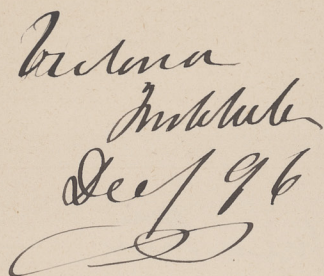 Victoria
Institute
Dec/96